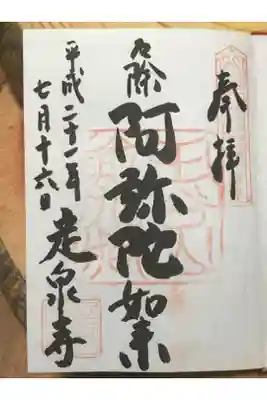 奉拝
厄除
阿弥陀如来
平成二十一年
七月十六日
泉寺